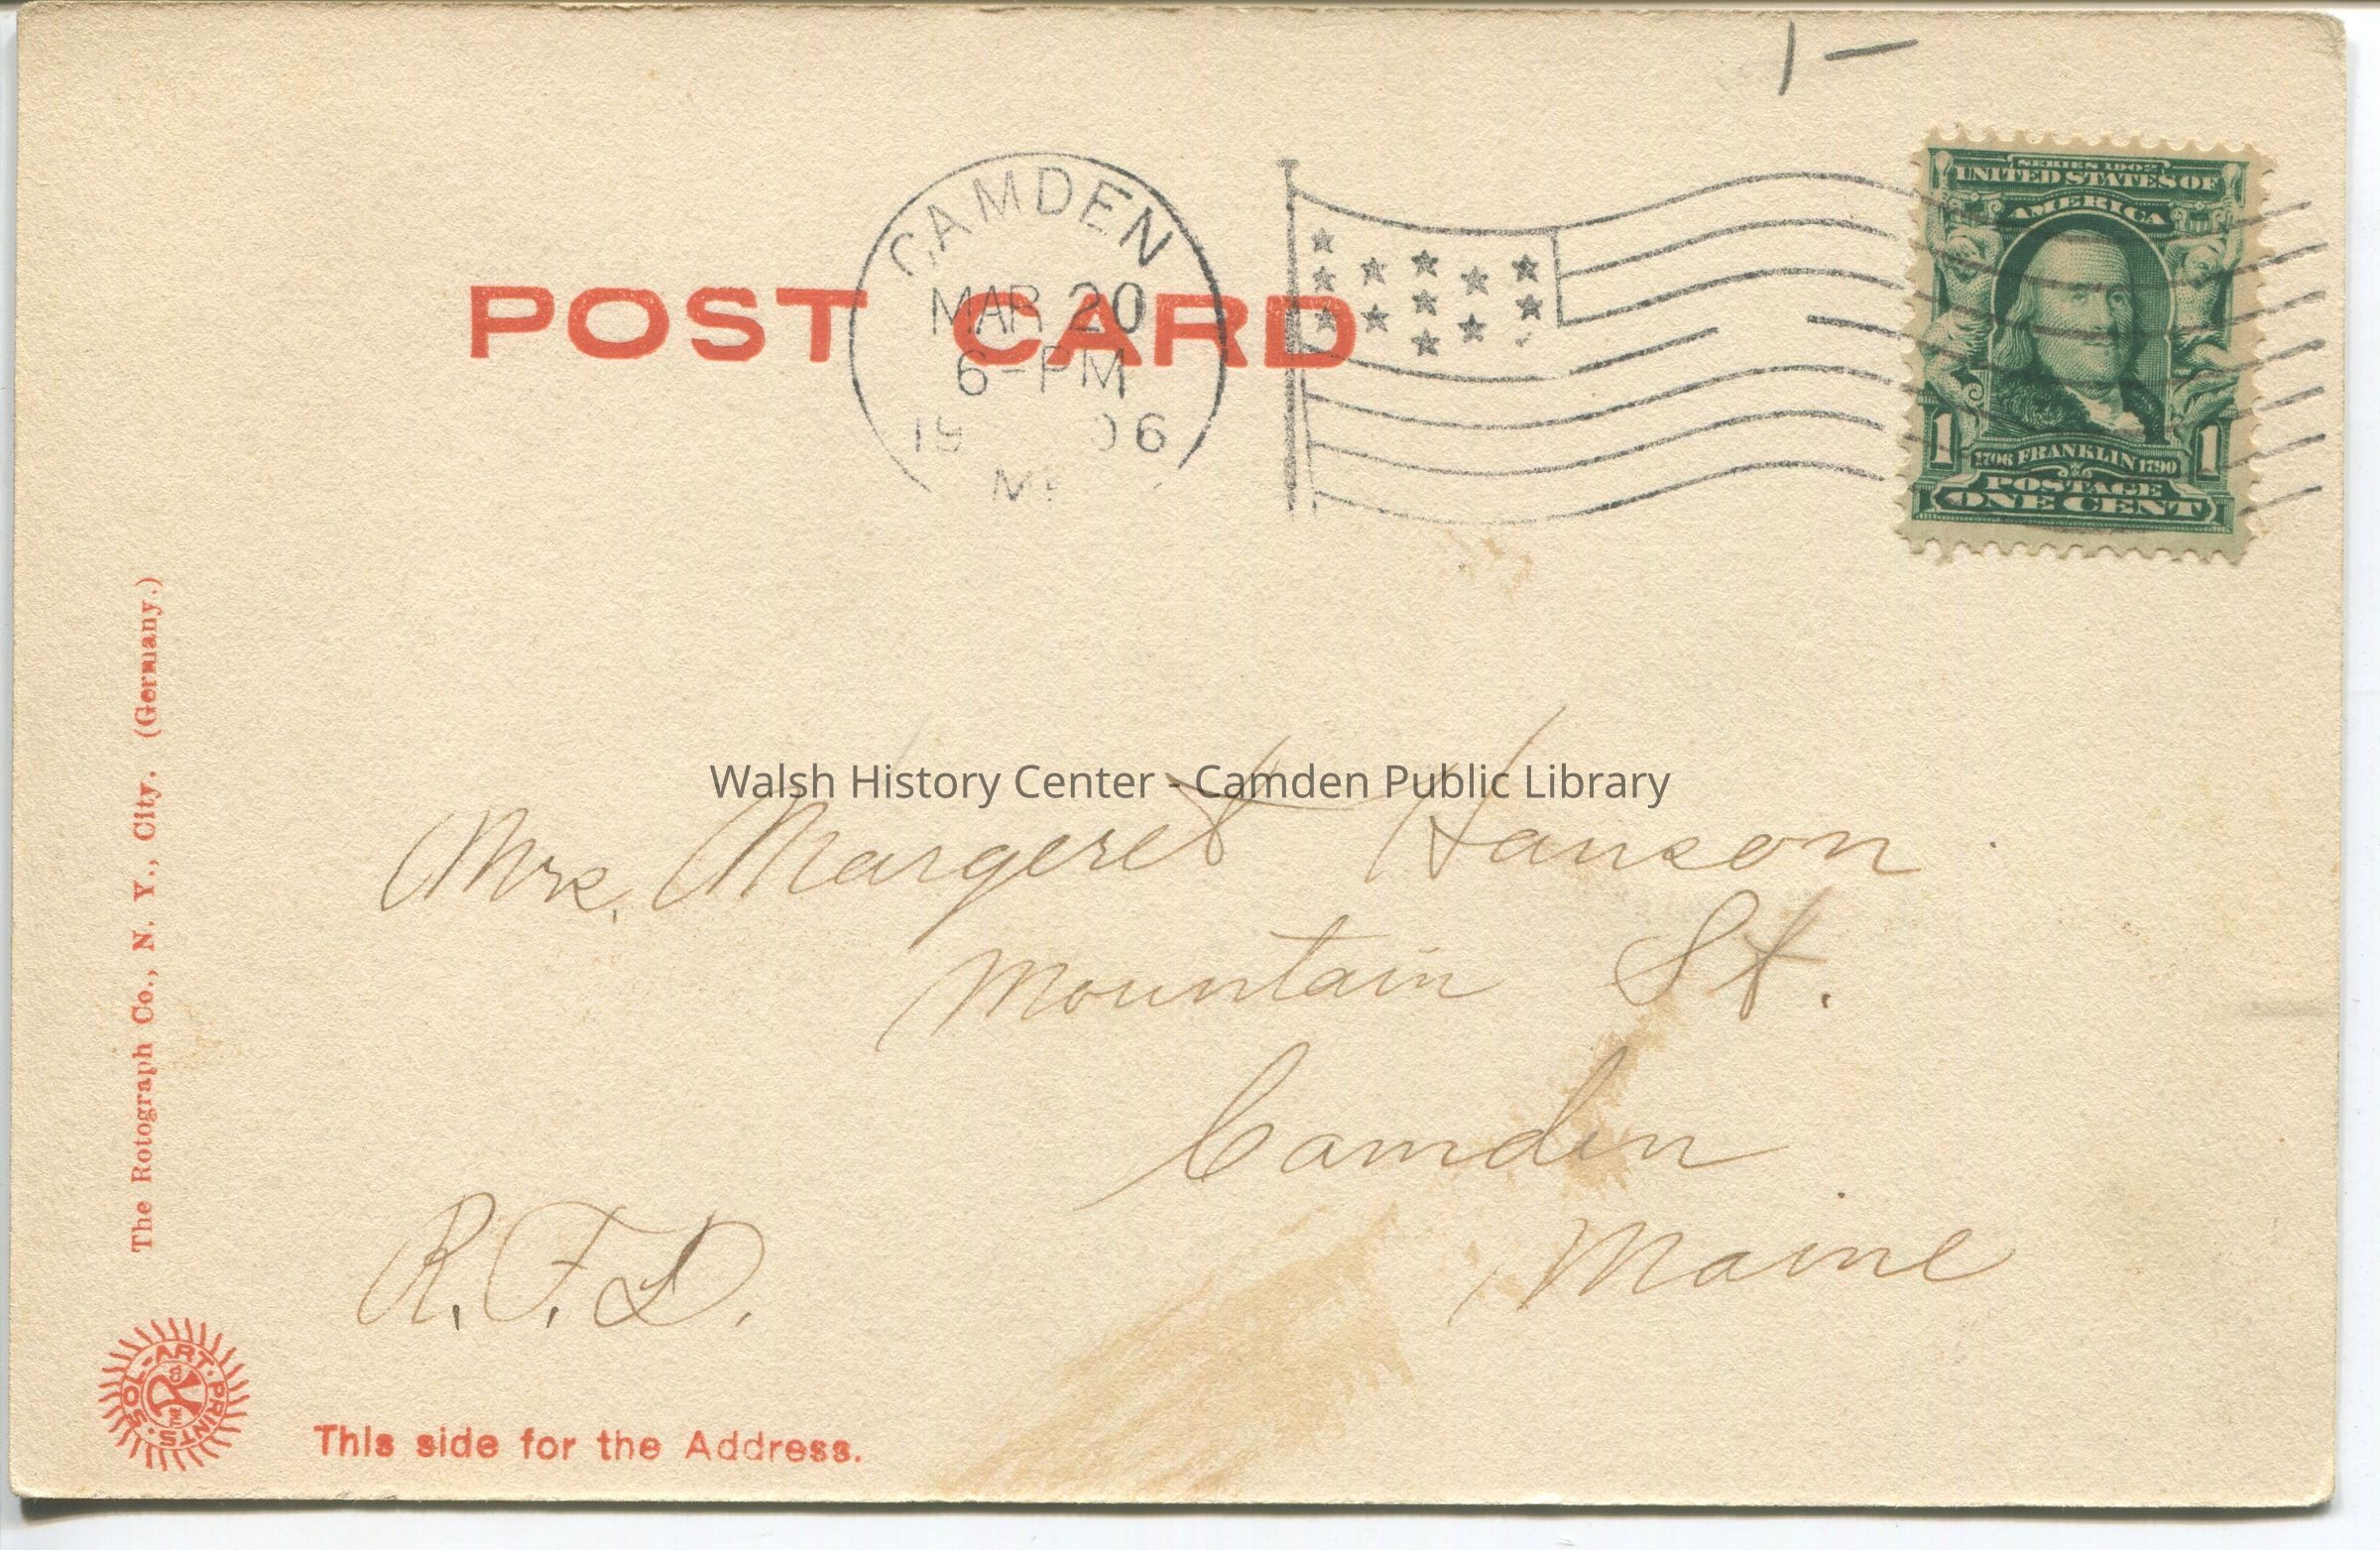 1 —
CAMDEN
MAR 20
6-PM
1906
ME
POST CARD
SERIES 1902
UNITED STATES OF
AMERICA
1706 FRANKLIN 1790
1 1
POSTAGE
ONE CENT
Walsh History Center - Camden Public Library
Mrs. Margeret Hanson.
Mountain St.
Camden
Maine
R.F.D.
The Rotograph Co., N. Y., City. (Germany.)
SOL-ART-PRINTS.
THE R Co
This side for the Address.